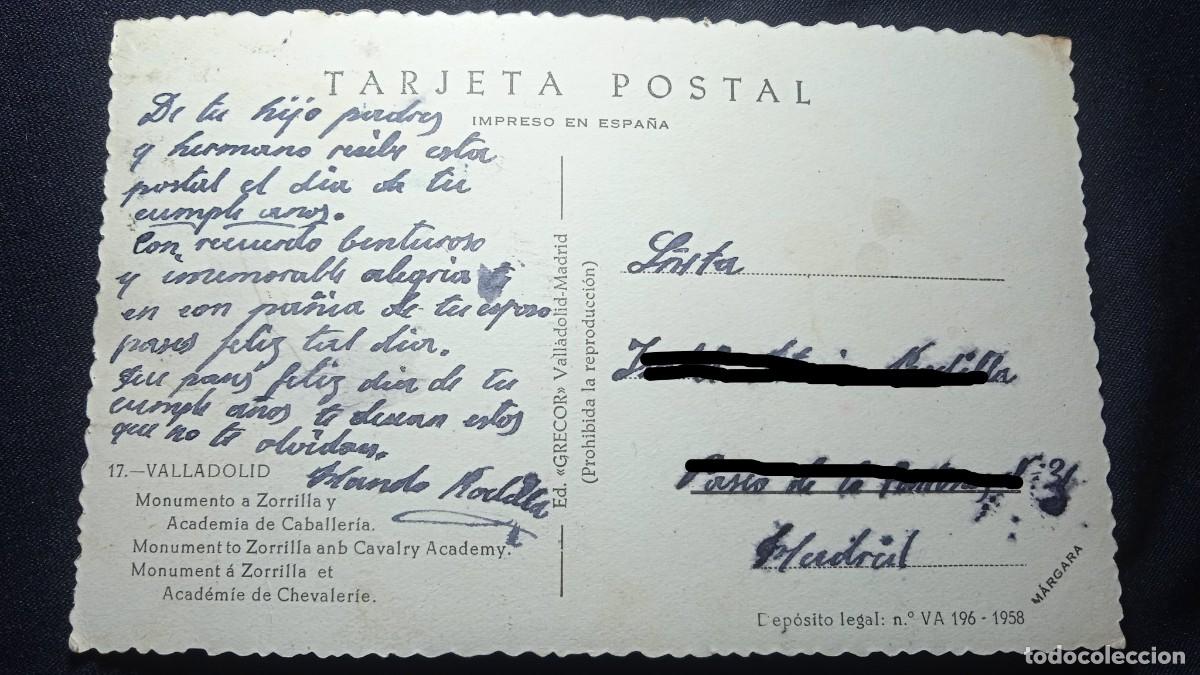 TARJETA POSTAL
IMPRESO EN ESPAÑA
De tu hijo padres
y hermano recibe esta
postal el dia de tu
cumple años.
Con recuerdo benturoso
y inmemorable alegria
en con pañia de tu esposo
pases feliz tal dia.
que pases feliz dia de tu
cumple años te desean estos
que no te olvidan.
Rodilla
17.—VALLADOLID
Monumento a Zorrilla y
Academia de Caballería.
Monument to Zorrilla anb Cavalry Academy.
Monument á Zorrilla et
Académíe de Chevalerie.
Ed. «GRECOR» Valladolid-Madrid
(Prohibida la reproducción)
Rodilla
Paseo de la
Madrid
MÁRGARA
Depósito legal: n.º VA 196 - 1958
todocoleccion